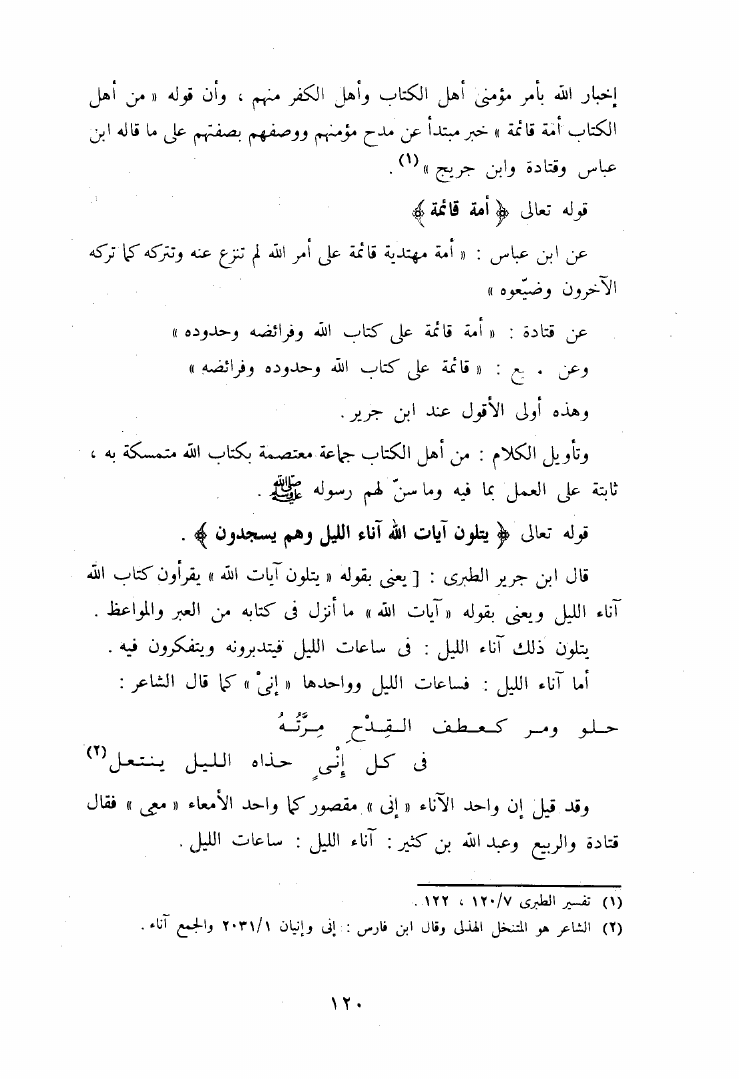 إخبار الله بأمر مؤمنى أهل الكتاب وأهل الكفر منهم ، وأن قوله « من أهل
الكتاب أمة قائمة » خبر مبتدأ عن مدح مؤمنهم ووصفهم بصفتهم على ما قاله ابن
عباس وقتادة وابن جريج »(١) .
قوله تعالى ﴿ أمة قائمة ﴾
عن ابن عباس : « أمة مهتدية قائمة على أمر الله لم تنزع عنه وتتركه كما تركه
الآخرون وضيّعوه »
عن قتادة : « أمة قائمة على كتاب الله وفرائضه وحدوده »
وعن . بع : « قائمة على كتاب الله وحدوده وفرائضه »
وهذه أولى الأقول عند ابن جرير .
وتأويل الكلام : من أهل الكتاب جماعة معتصمة بكتاب الله متمسكة به ،
ثابتة على العمل بما فيه وما سنّ لهم رسوله ﷺ .
قوله تعالى ﴿ يتلون آيات الله آناء الليل وهم يسجدون ﴾ .
قال ابن جرير الطبرى : [ يعنى بقوله « يتلون آيات الله » يقرأون كتاب الله
آناء الليل ويعنى بقوله « آيات الله » ما أنزل فى كتابه من العبر والمواعظ .
يتلون ذلك آناء الليل : فى ساعات الليل فيتدبرونه ويتفكرون فيه .
أما آناء الليل : فساعات الليل وواحدها « إنىْ » كما قال الشاعر :
حلو ومر كعطف القِدْحِ مِرَّتُهُ
فى كل إِنْىٍ حذاه الليل ينتعل(٢)
وقد قيل إن واحد الآناء « إنى » مقصور كما واحد الأمعاء « معى » فقال
قتادة والربيع وعبد الله بن كثير : آناء الليل : ساعات الليل .
(١) تفسير الطبرى ١٢٠/٧ ، ١٢٢ .
(٢) الشاعر هو المتنخل الهذلى وقال ابن فارس : إنى وإنيان ٢٠٣١/١ والجمع آناء .
١٢٠